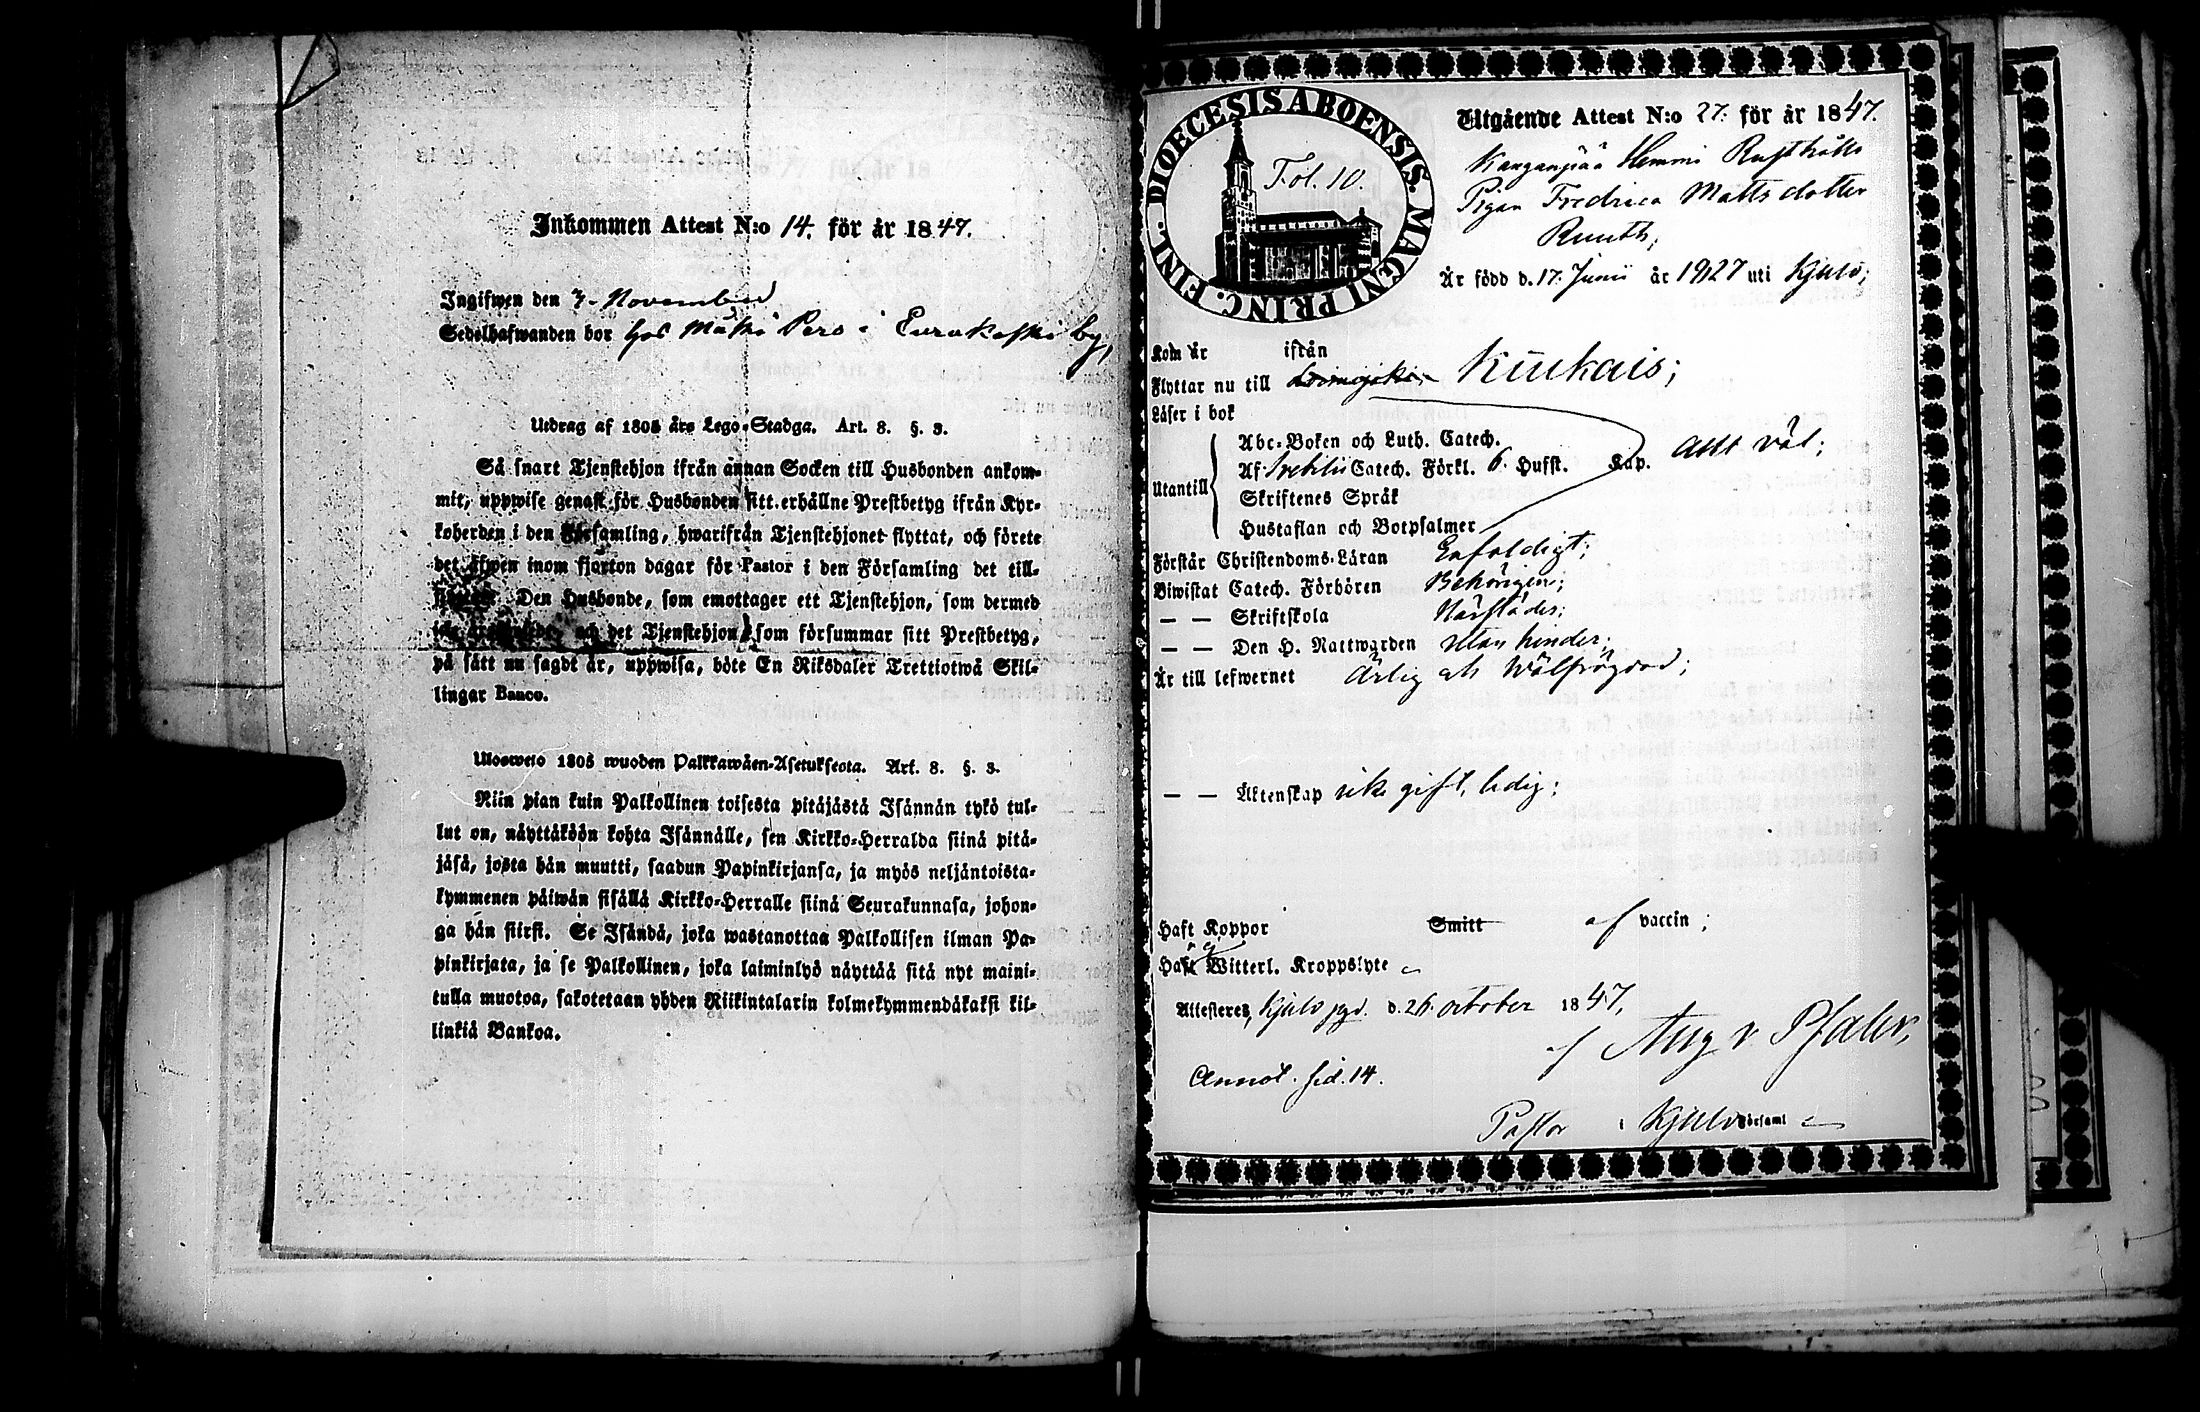 Inkommen Attest N:o 14. för år 1847.
Ingifwen den 3. November
Sedelhafwanden bor hos Matts Pero i Eurakoski by,
Utdrag af 1805 års Lego-Stadga. Art. 8. §. 3.
Så snart Tjenstehjon ifrån annan Socken till Husbonden ankom-
mit, uppwise genast för Husbonden sitt erhållne Prestbetyg ifrån Kyr-
koherden i den Församling, hwarifrån Tjenstehjonet flyttat, och förete
det äfwen inom fjorton dagar för Pastor i den Församling det till-
Den Husbonde, som emottager ett Tjenstehjon, som dermed
och det Tjenstehjon, som försummar sitt Prestbetyg,
på sått nu sagdt är, uppwisa, böte En Riksdaler Trettiotwå Skil-
lingar Banco.
Ulosweto 1805 wuoden Palkkawäen-Asetuksesta. Art. 8. §. 3.
Niin pian kuin Palkollinen toisesta pitäjästä Isännän tykö tul-
lut on, näyttäköön kohta Isännälle, sen Kirkko-Herralda siinä pitä-
jäsä, josta hän muutti, saadun Papinkirjansa, ja myös neljäntoista-
kymmenen päiwän sisällä Kirkko-Herralle siinä Seurakunnasa, johon-
ga hän siirsi. Se Isändä, joka wastanottaa Palkollisen ilman Pa-
pinkirjata, ja se Palkollinen, joka laiminlyö näyttää sitä nyt maini-
tulla muotoa, sakotetaan yhden Riikintalarin kolmekymmendäkaksi kil-
linkiä Bankoa.
DIOECESIS ABOENSIS. MAGNI PRINC. FINL.
Fol. 10.
Utgående Attest N:o 27. för år 1847.
Kanganpää Hemmi Rusthålls
Pigan Fredrica Matts dotter
Ruuth;
Är född d. 17. Junii år 1827 uti Kjulo;
Kom år ifrån
Flyttar nu till Kiukais;
Läser i bok
Utantill
Abc-Boken och Luth. Catech.
Af Svebilii Catech. Förkl. 6. Hufst. Kap. Allt väl;
Skriftenes Språk
Hustaflan och Botpsalmer
Förstår Christendoms-Läran Enfaldigt;
Biwistat Catech. Förhören Behörigen;
— — Skriftskola Härstädes;
— — Den H. Nattwarden utan hinder;
Är till lefwernet Ärlig och Wälfrägdad;
— — Äktenskap icke gift, ledig;
Haft Koppor Smitt af vaccin;
Haft ej Witterl. Kroppslyte
Attesteres, Kjulo pgd. d. 26. october 1847,
af Aug v Pfaler,
Annot. sid. 14.
Pastor i Kjulo Församl